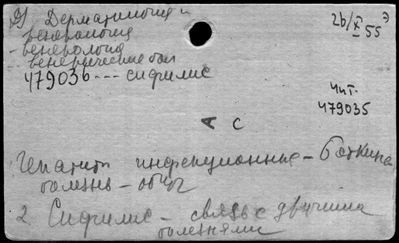 Дерматология и
венерология
- венерология
венерические бол
479036 --- сифилис
26/X-55
Чит.
479035
А С
Гепатит инфекционные - Боткина
болезнь -
2 Сифилис - связь с другими
болезнями